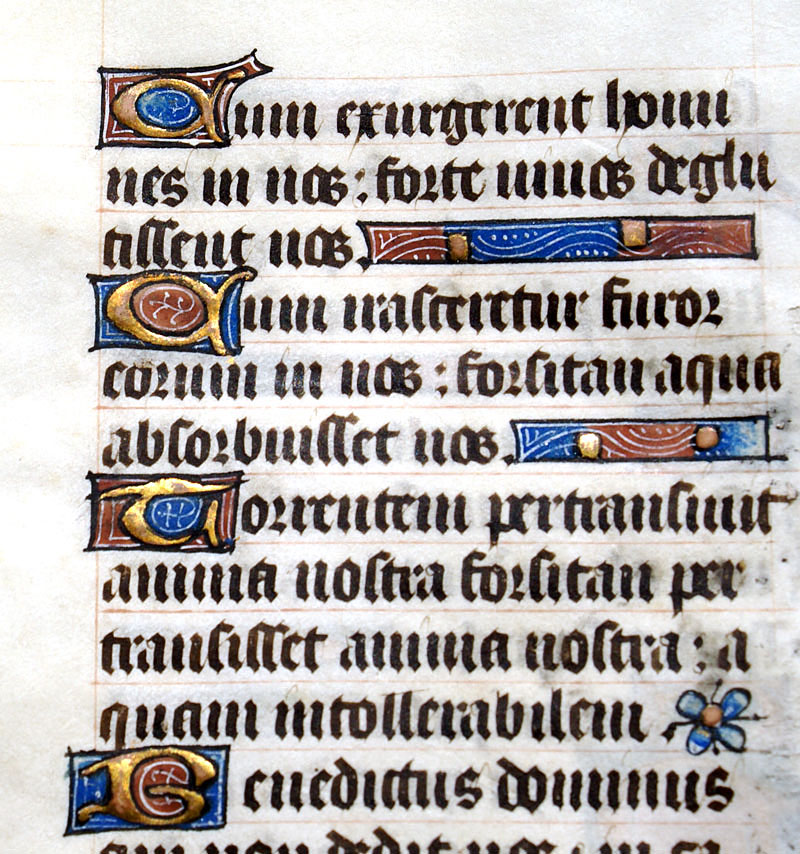 Cum exurgerent homi
nes in nos : forte vivos deglu
tissent nos.
Cum irasceretur furor
eorum in nos : forsitan aqua
absorbuisset nos.
Torrentem pertransivit
anima nostra forsitan per
transisset anima nostra : a
quam intollerabilem.
Benedictus dominus
qui non dedit nos : in ca